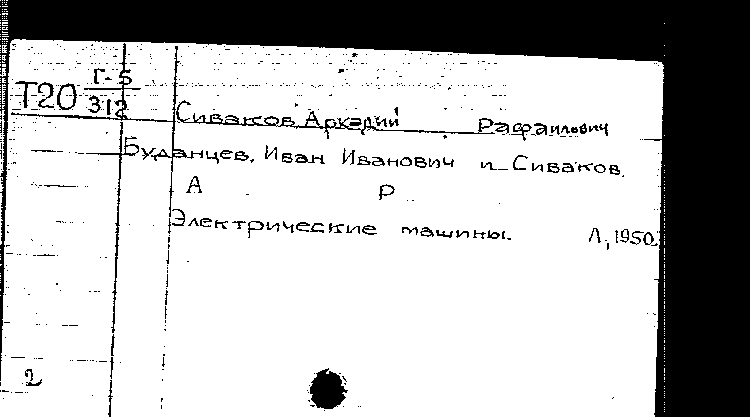 Т20 Г-5
312
Сиваков Аркадий Рафаилович
Буданцев, Иван Иванович и Сиваков,
А Р
Электрические машины. Л, 1950.
2